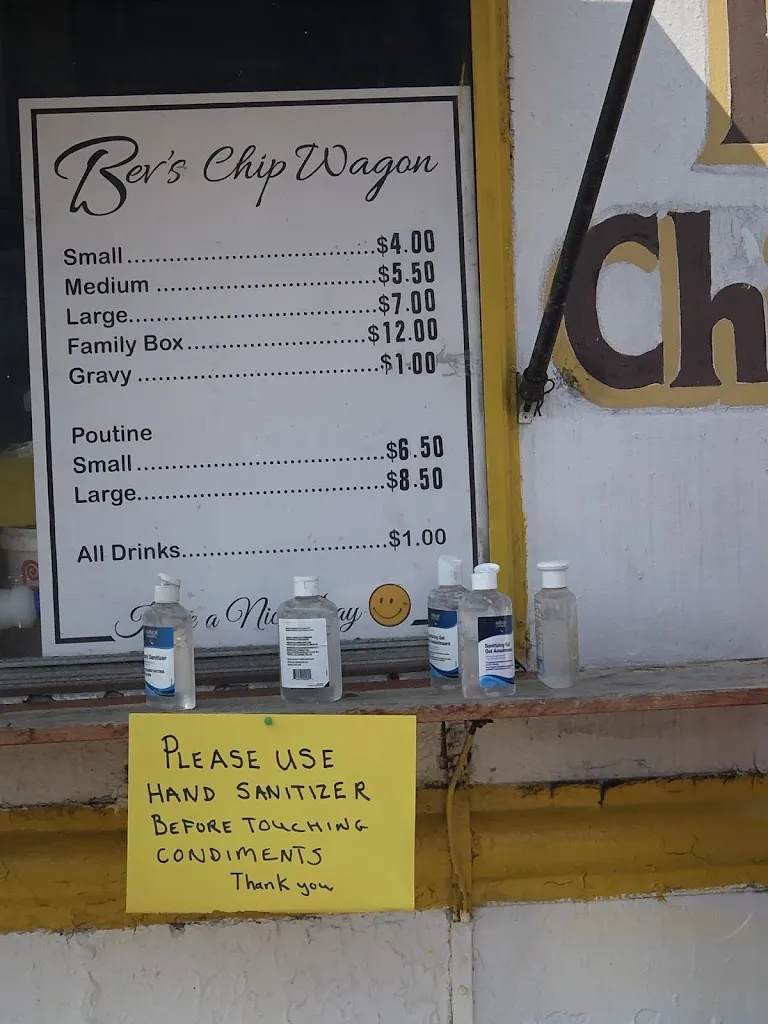 Bev's Chip Wagon
Small.......................................$4.00
Medium ..................................$5.50
Large.......................................$7.00
Family Box...........................$12.00
Gravy .....................................$1.00
Poutine
Small.......................................$6.50
Large.......................................$8.50
All Drinks................................$1.00
a Nice
Chi
Sanitizing Gel
PLEASE USE
HAND SANITIZER
BEFORE TOUCHING
CONDIMENTS
Thank you